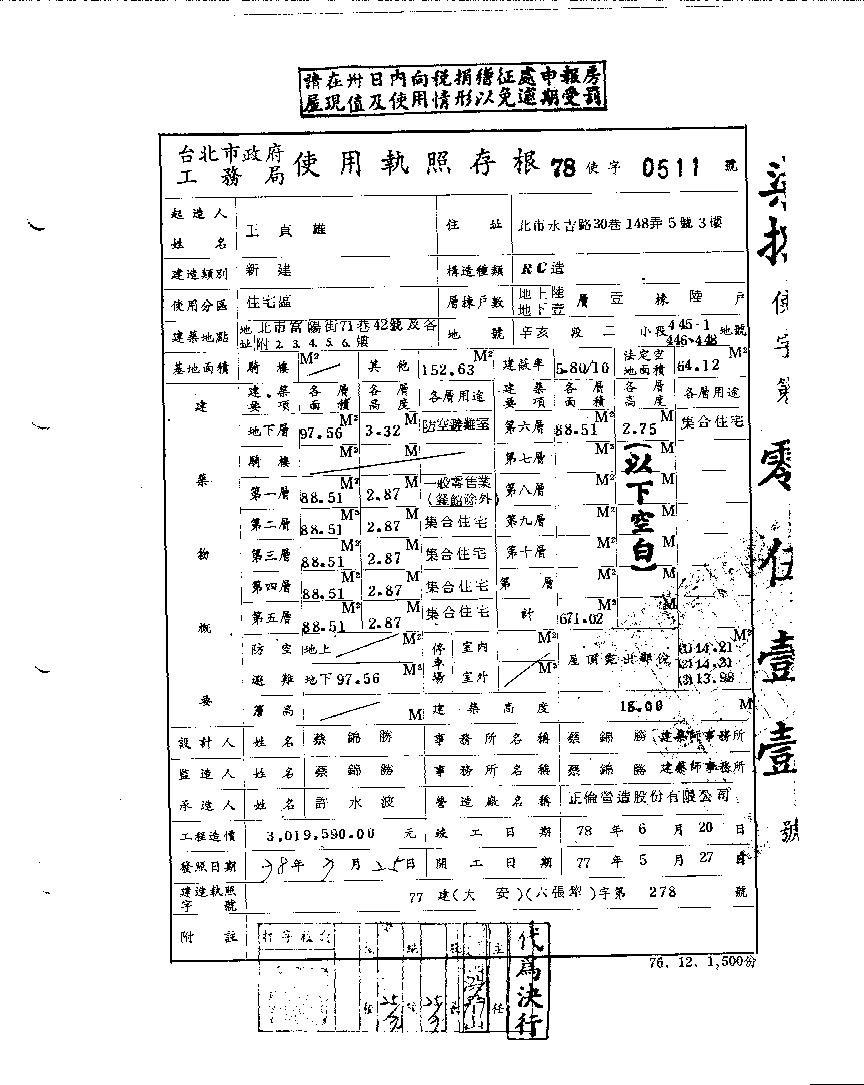 請在卅日內向稅捐稽征處申報房
屋現值及使用情形以免逾期受罰
台北市政府
工務局 使用執照存根 78 使字 0511 號
起造人姓名 王貞雄 住址 北市永吉路30巷148弄5號3樓
建造類別 新建 構造種類 RC造
使用分區 住宅區 層棟戶數 地上陸地下壹層壹棟陸戶
建築地點 地址 北市富陽街71巷42號及各附2.3.4.5.6.樓 地號 辛亥段二小段445-1 446-448地號
基地面積 騎樓 M² 其他 152.63 M² 建蔽率 5.80/10 法定空地面積 64.12 M²
建築物概要
建築要項 各層面積 各層高度 各層用途 建築要項 各層面積 各層高度 各層用途
地下層 97.56 M² 3.32 M 防空避難室 第六層 88.51 M² 2.75 M 集合住宅
騎樓 M² M 第七層 M² (以下空白)
第一層 88.51 M² 2.87 M 一般零售業(餐飲除外) 第八層 M² M
第二層 88.51 M² 2.87 M 集合住宅 第九層 M² M
第三層 88.51 M² 2.87 M 集合住宅 第十層 M² M
第四層 88.51 M² 2.87 M 集合住宅 第 層 M² M
第五層 88.51 M² 2.87 M 集合住宅 計 671.02 M² M
防空 地上 M² 停車場 室內 M² 屋頂突出部份 (1)14.21 (2)14.21 (3)13.98 M²
避難 地下97.56 室外 M²
簷高 M 建築高度 18.00 M
設計人 姓名 蔡錦勝 事務所名稱 蔡錦勝建築師事務所
監造人 姓名 蔡錦勝 事務所名稱 蔡錦勝建築師事務所
承造人 姓名 許水波 營造廠名稱 正倫營造股份有限公司
工程造價 3,019.590.00 元 竣工日期 78年6月20日
發照日期 78年7月25日 開工日期 77年5月27日
建造執照字號 77建(大安)(六張犂)字第278號
附註
代為決行
主任
76.12.1,500份
柒拾 使字第 零伍壹壹 號